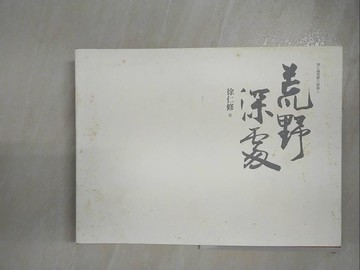 荒野
深處
徐仁修